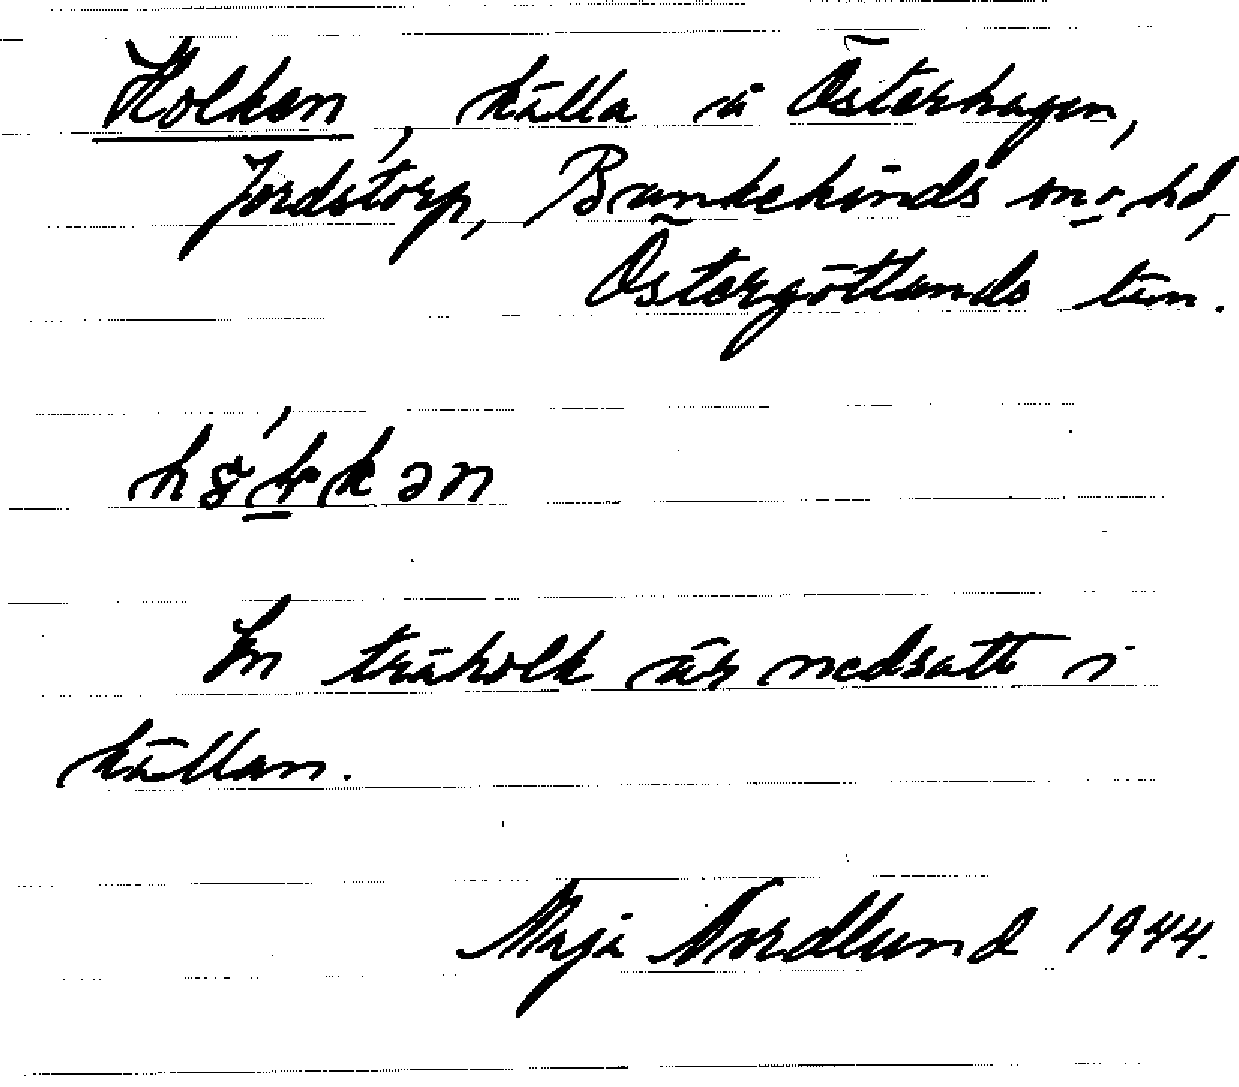 Holken, källa i Österhagen,
Jordstorp, Bankekinds sn o. hd,
Östergötlands län.
En träholk är nedsatt i
källan.
Maja Nordlund 1944.